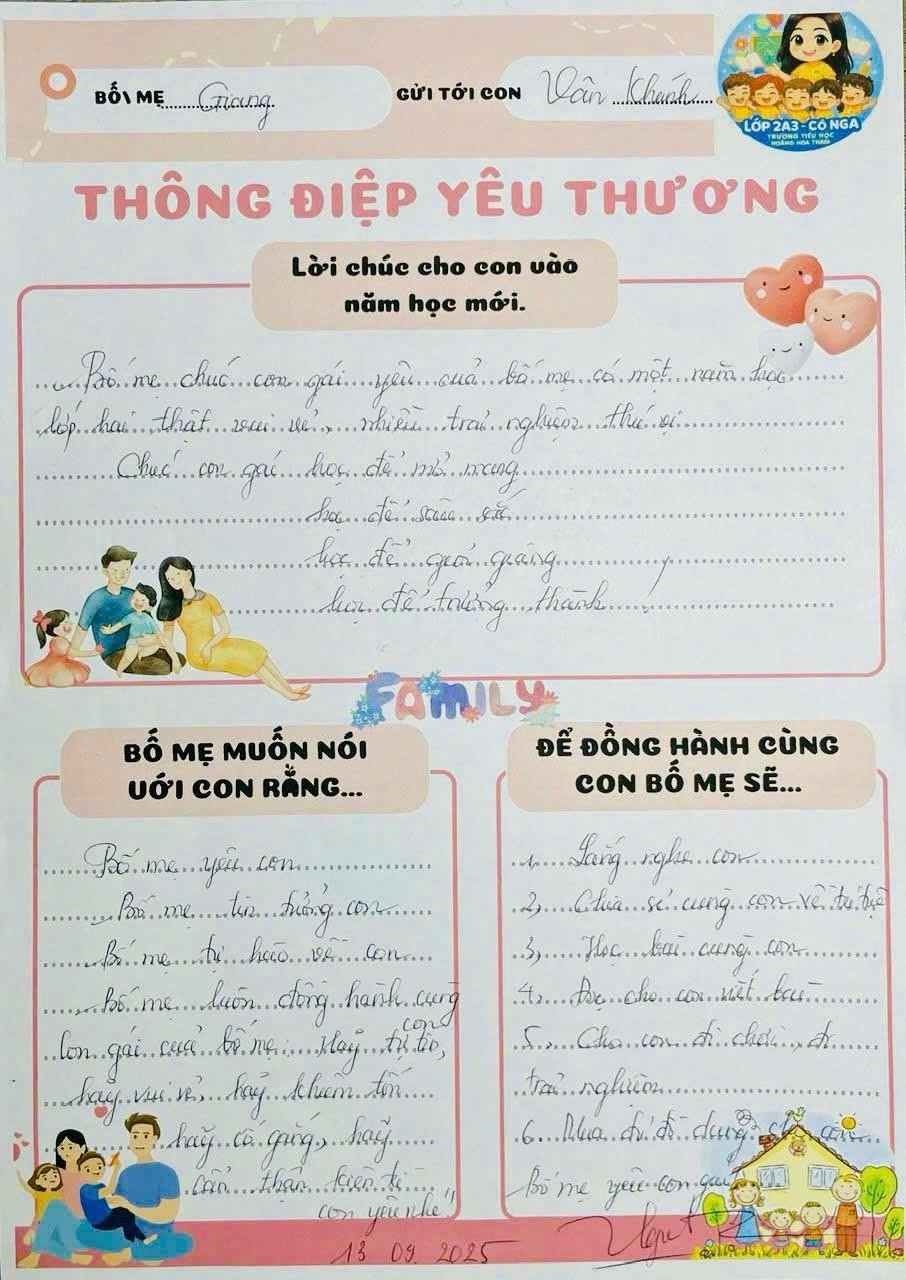 BỐ\ MẸ Giang GỬI TỚI CON Vân Khánh
LỚP 2A3 - CÔ NGA
TRƯỜNG TIỂU HỌC
HOÀNG HOA THÁM
THÔNG ĐIỆP YÊU THƯƠNG
Lời chúc cho con vào
năm học mới.
Bố mẹ chúc con gái yêu của bố mẹ có một năm học
lớp hai thật vui vẻ, nhiều trải nghiệm thú vị
Chúc con gái học để mở mang
học để sâu sắc
học để
học để trưởng thành !
FAMILY
BỐ MẸ MUỐN NÓI
VỚI CON RẰNG...
Bố mẹ yêu con
Bố mẹ tin tưởng con
Bố mẹ tự hào về con
Bố mẹ luôn đồng hành cùng
con
Con gái của bố mẹ. Hãy tự tin,
hãy vui vẻ, hãy khiêm tốn
hãy cố gắng, hãy
cẩn thận kiên trì
con yêu nhé"
ĐỂ ĐỒNG HÀNH CÙNG
CON BỐ MẸ SẼ...
1, Lắng nghe con
2, Chia sẻ cùng con về
3, Học bài cùng con
4. Đọc cho con viết bài
5, Cho con đi chơi, đi
trải nghiệm
6. Mua đồ dùng cho con
Bố mẹ yêu con gái
13 09. 2025